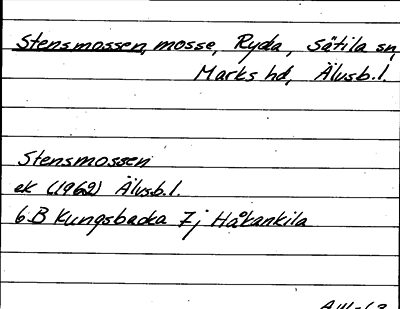 Stensmossen, mosse, Ryda, Sätila sn,
Marks hd, Älvsb.l.
Stensmossen
ek (1962) Älvsb.l.
6.B Kungsbacka 7j Håkankila